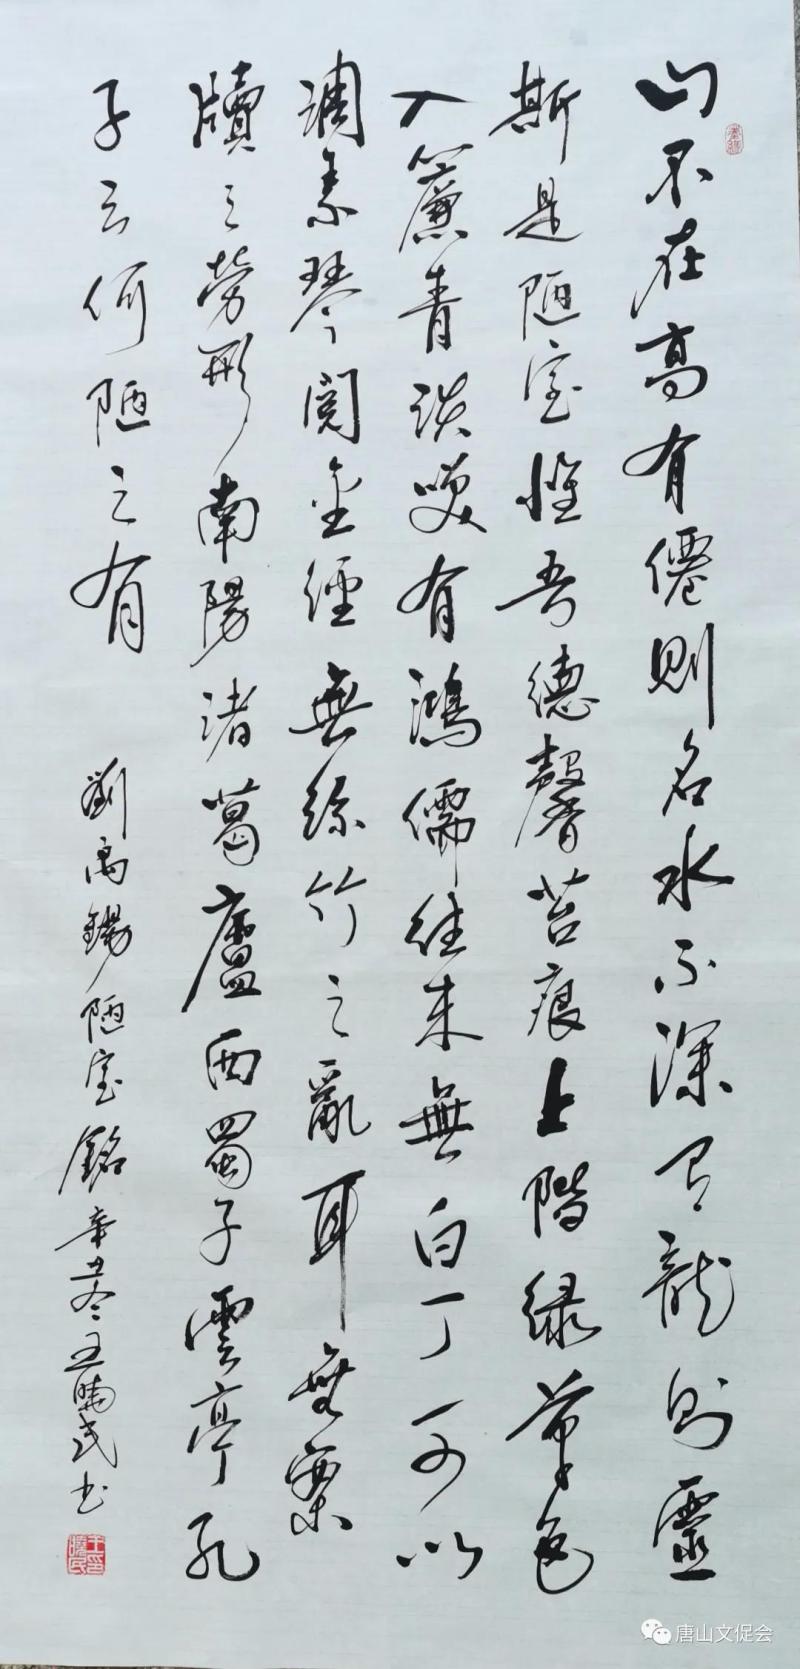 山不在高有僊則名水不深有龍則靈
斯是陋室惟吾德馨苔痕上階緑草色
入簾青談笑有鴻儒往来無白丁可以
調素琴閱金經無絲竹之亂耳無案
牘之勞形南陽諸葛廬西蜀子雲亭孔
子云何陋之有
劉禹錫陋室銘辛丑冬王曉民书
王曉民印
唐山文促会